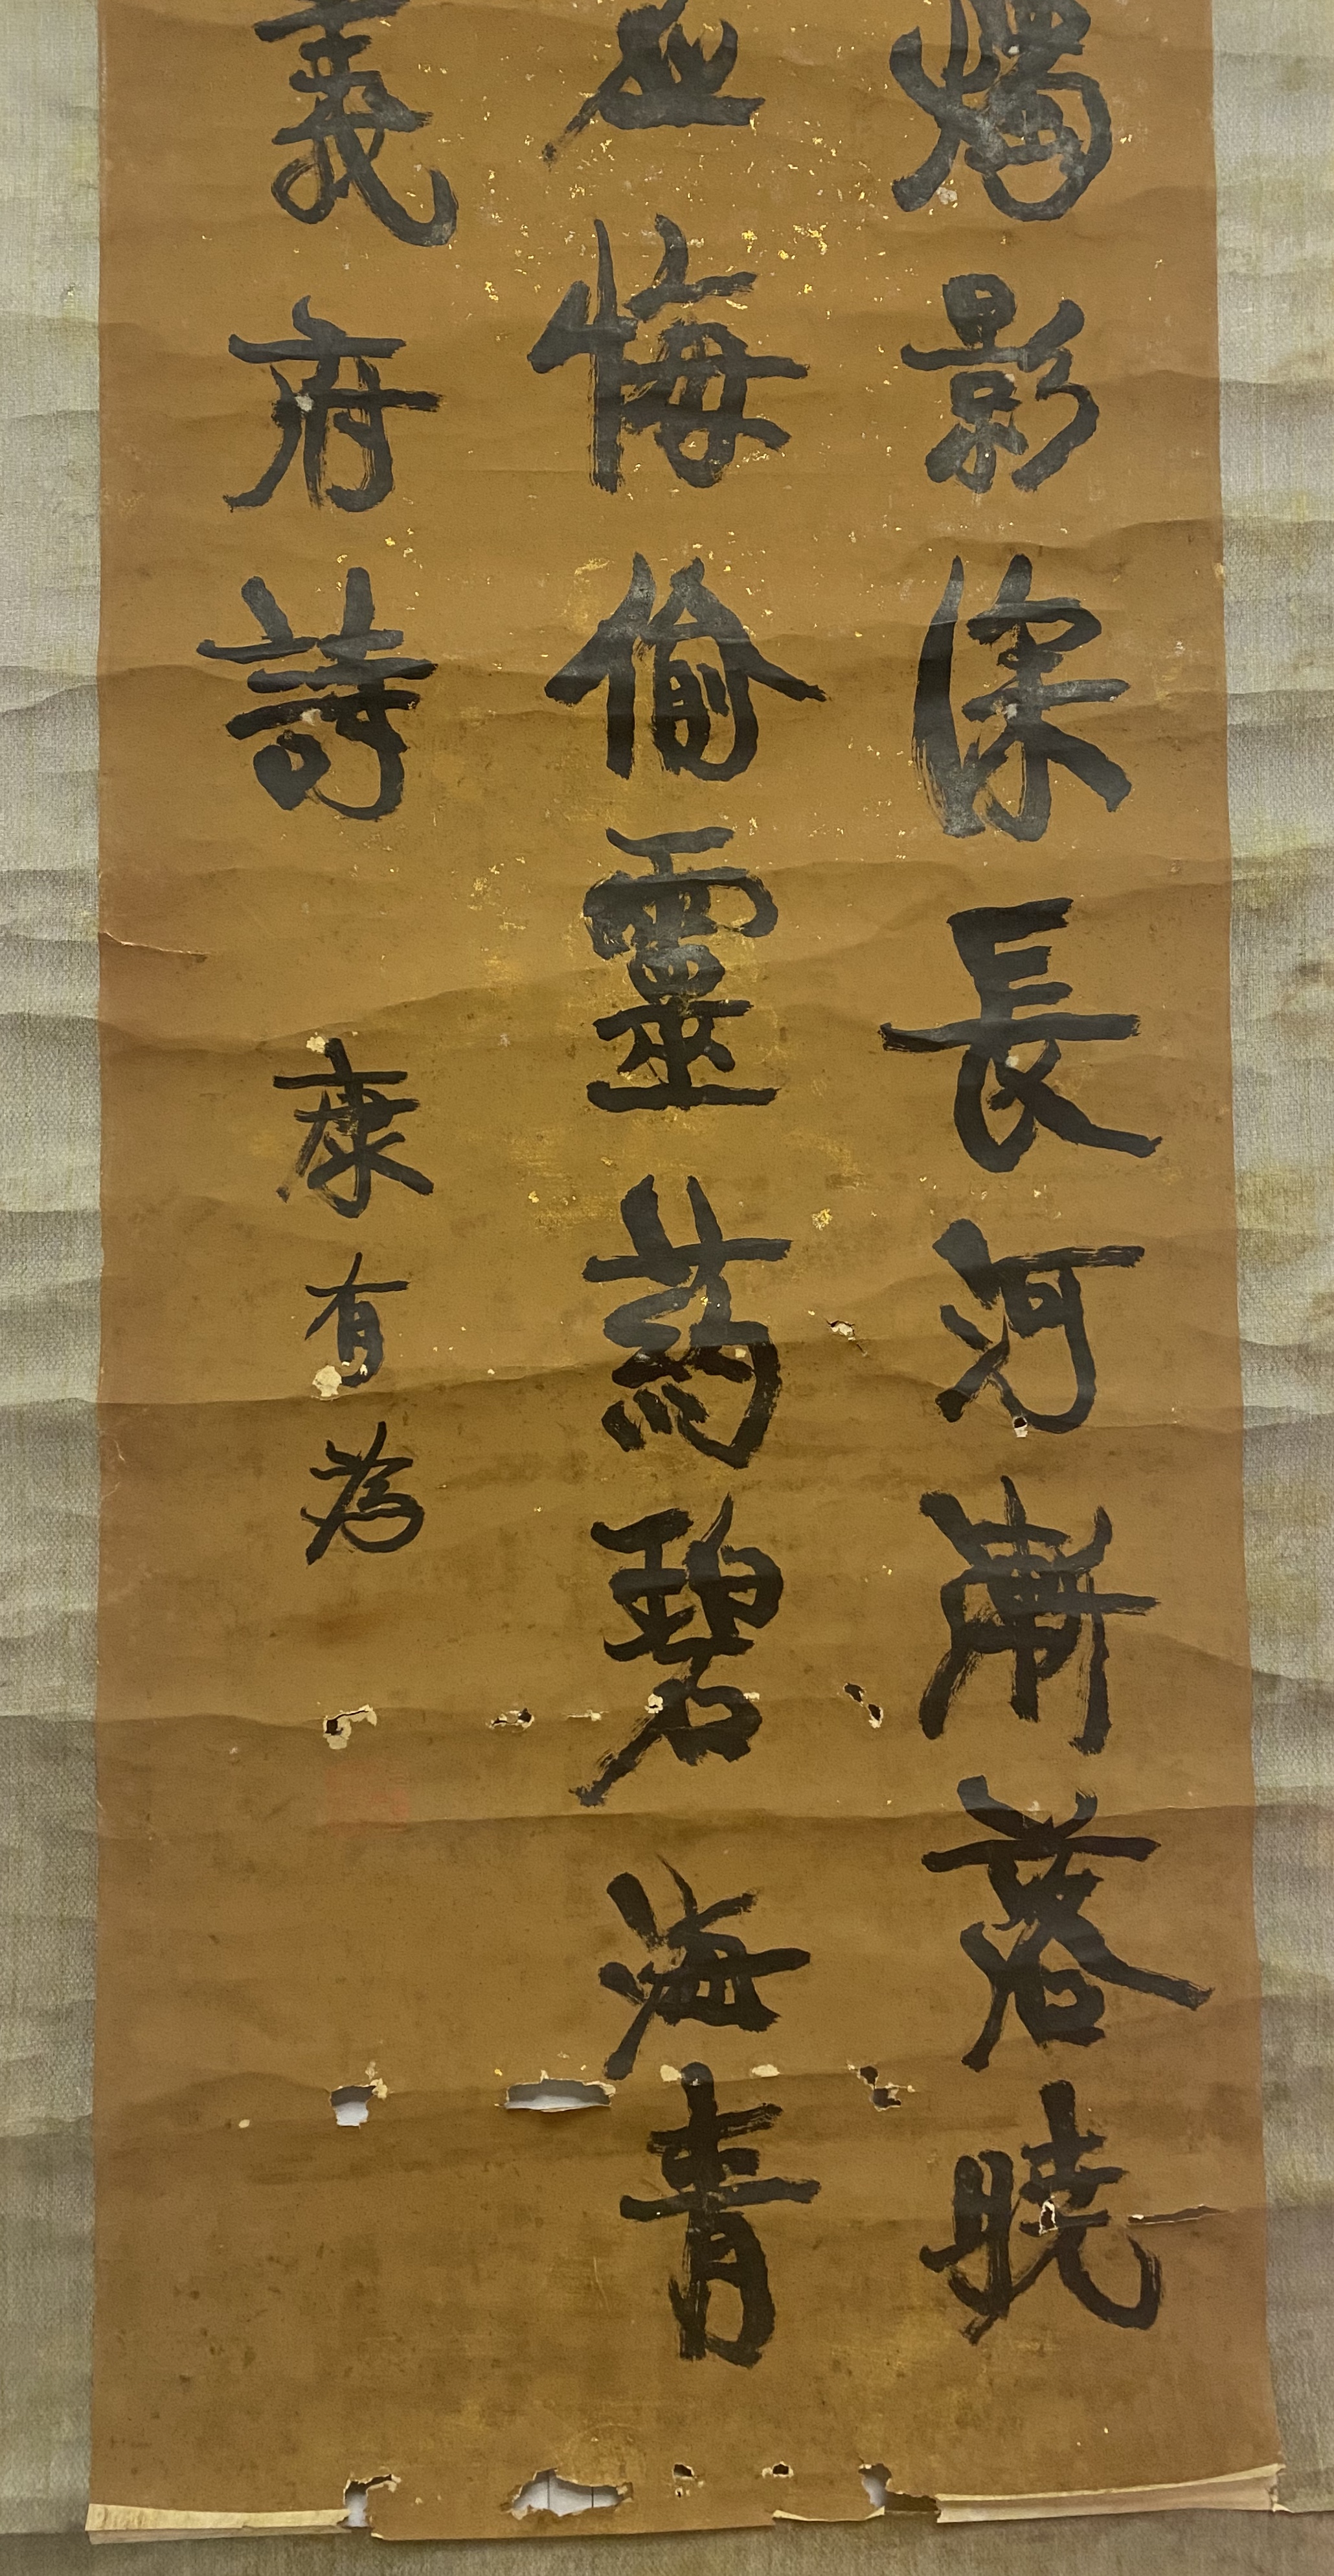 燭影深長河漸落曉
應悔偷靈葯碧海青
義府詩
康有為